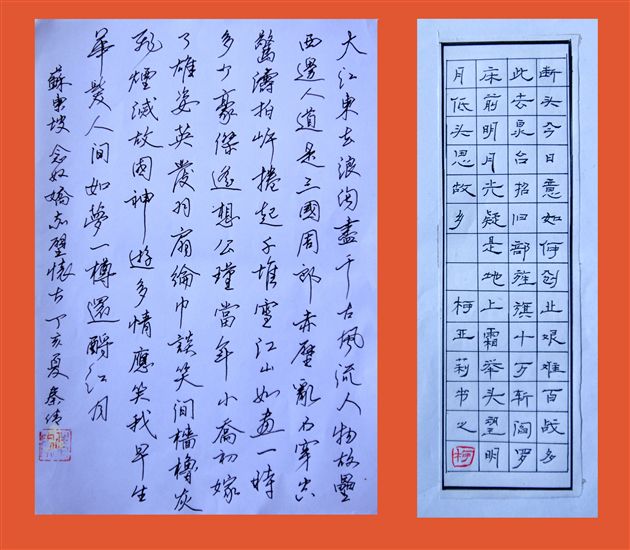 大江東去浪淘盡千古風流人物故壘
西邊人道是三國周郎赤壁亂石穿空
驚濤拍岸捲起千堆雪江山如畫一時
多少豪傑遙想公瑾當年小喬初嫁
了雄姿英發羽扇綸巾談笑間檣櫓灰
飛煙滅故國神遊多情應笑我早生
華髮人间如夢一樽還酹江月
蘇東坡念奴嬌赤壁懷古丁亥夏秦
断头今日意如何创业艰难百战多
此去泉台招旧部旌旗十万斩阎罗
床前明月光疑是地上霜举头望明
月低头思故乡 柯亚莉书之
柯